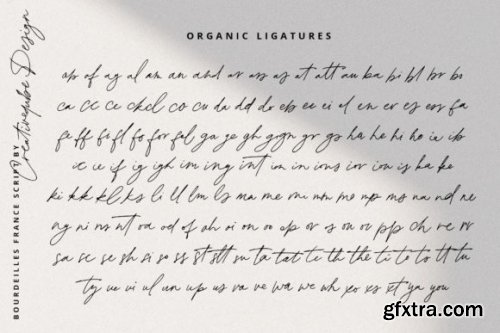 ORGANIC LIGATURES
op of ag al am an and ar as as at att au ba bi bl br bs
ca cc ce ckd co cu da dd de eb ee ei el en er es ess fa
fe ff fi fl fo for ful ga ge gh gg gn gr gs ha he hi ho ia ib
ic ie if ig igh im ing int ion in ins ior ion is ha ke
ki kk kl ks li ll lm ls ma me mi mm mo mp ms na nd ne
ng ni ns nt oa od of oh oi on oo op or os ou pp ch re rr
sa sc se sh si so ss st stt su ta tat te th the ti to to tt tu
ty ue ui ul un up us va ve wa we wh xo xs xt ya you
BOURDEILLES FRANCE SCRIPT BY
Creativepibe Design
gfxtra.com